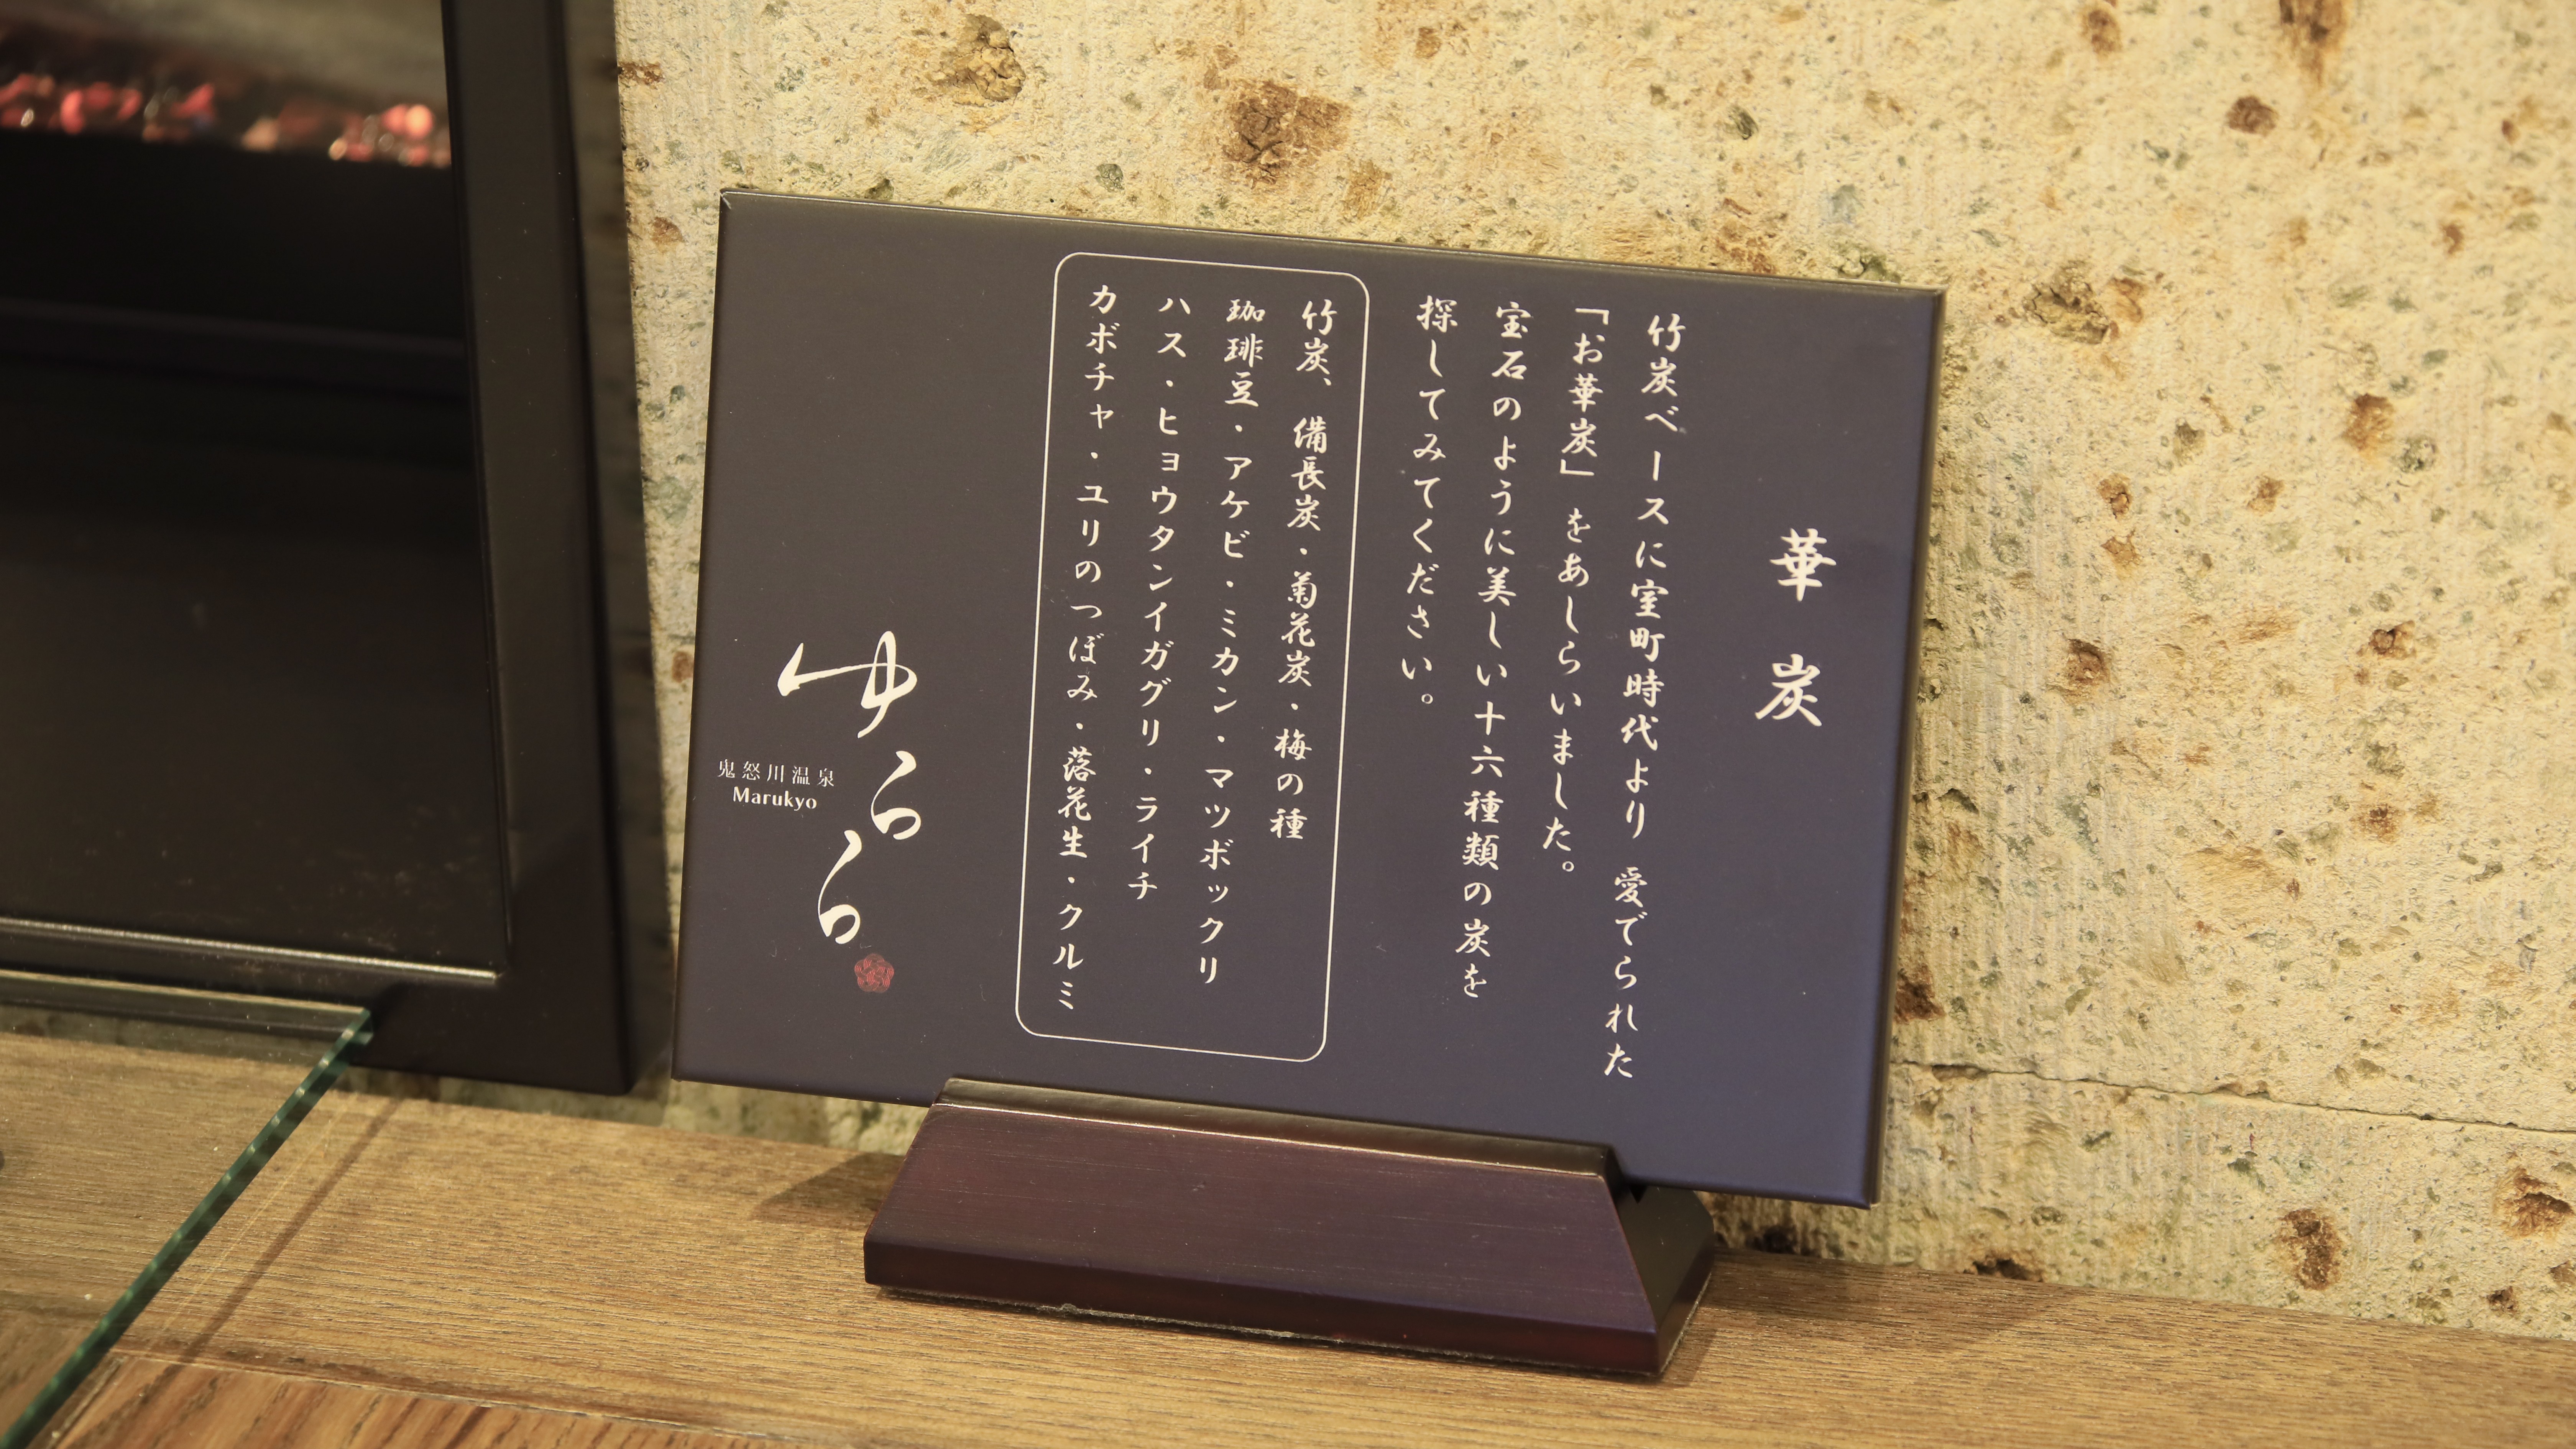 華炭
竹炭ベースに室町時代より 愛でられた
「お華炭」をあしらいました。
宝石のように美しい十六種類の炭を
探してみてください。
竹炭、備長炭・菊花炭・梅の種
珈琲豆・アケビ・ミカン・マツボックリ
ハス・ヒョウタンイガグリ・ライチ
カボチャ・ユリのつぼみ・落花生・クルミ
ゆらら
鬼怒川温泉
Marukyo